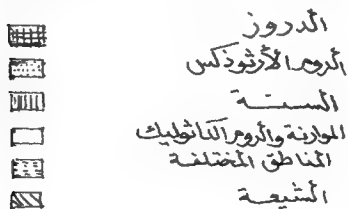 الدروز
الروم الأرثوذكس
السنة
الموارنة والروم الكاثوليك
المناطق المختلفة
الشيعة